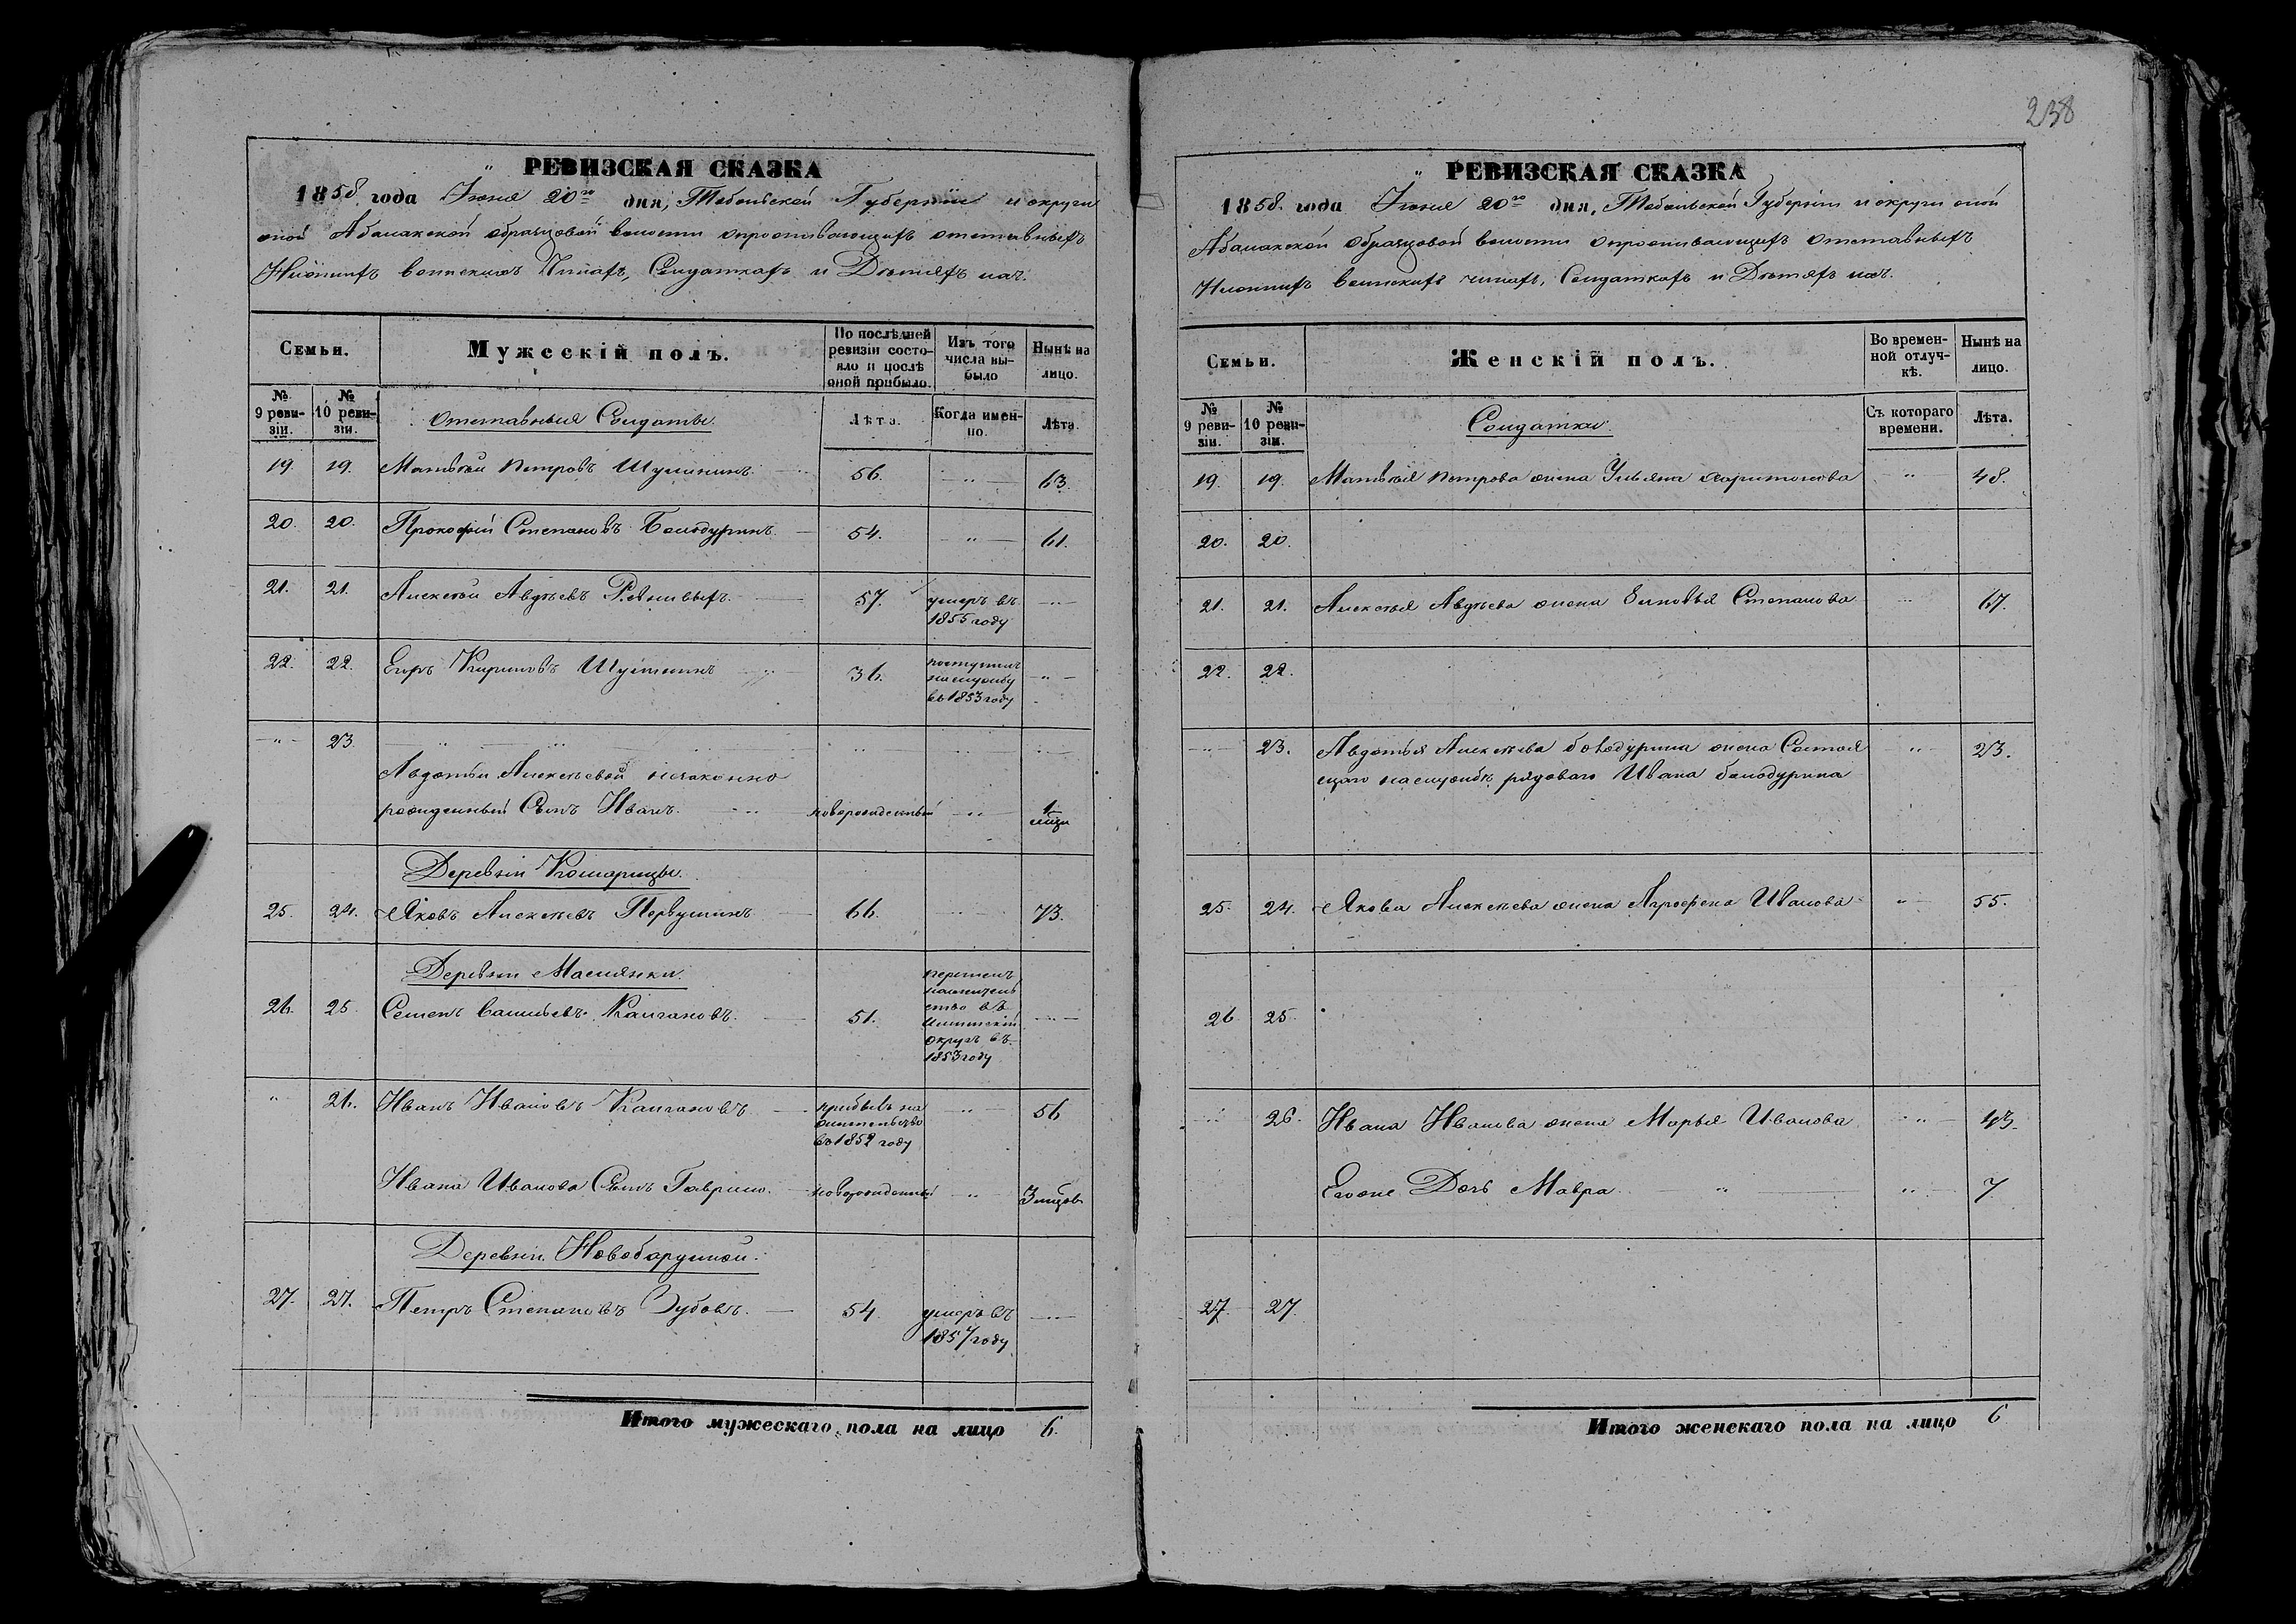 РЕВИЗСКАЯ СКАЗКА
1858 года Июня 20го дня, Тобольской Губернии и округи
оной Абалакской образцовой волости о проживающихъ отставныхъ
Нижнихъ воинскихъ Чинахъ, Солдаткахъ и Дѣтяхъ ихъ.
Семьи.
Мужескій полъ.
По послѣдней ревизіи состояло и послѣ оной прибыло.
Изъ того числа выбыло
Нынѣ на лицо.
№ 9 ревизіи.
№ 10 ревизіи.
Отставныя Солдаты.
Лѣта.
Когда именно.
Лѣта.
19. 19. Матвѣй Петровъ Шушинъ 56. 63.
20. 20. Прокофій Степановъ Болодуринъ 54. 61.
21. 21. Алексѣй Авдѣевъ 57. умеръ въ
1855 году
22. 22. Егоръ Кириловъ 36. поступилъ
на службу
въ 1853 году
23.
Авдотьи Алексѣевой незаконно
рожденный Сынъ Иванъ новорожденный 1 мѣц
Деревни
25. 24. Яковъ Алексѣевъ Первушинъ 66. 73.
Деревни Маслянки.
26. 25. Семенъ Васильевъ Калгановъ 51.
въ
Ишимскій
округъ въ
1853 году
26. Иванъ Ивановъ Калгановъ прибылъ на
жительство
въ 1852 году 56
Ивана Иванова Сынъ Гаврило новорожденный 3 мѣцов
Деревни
27. 27. Петръ Степановъ Зубовъ 54 умеръ въ
1857 году
Итого мужескаго пола на лицо 6.
238
РЕВИЗСКАЯ СКАЗКА
1858 года Июня 20го дня, Тобольской Губерніи и округи оной
Абалакской образцовой волости о проживающихъ отставныхъ
Нижнихъ воинскихъ чинахъ, Солдаткахъ и Дѣтяхъ ихъ.
Семьи.
Женскій полъ.
Во временной отлучкѣ.
Нынѣ на лицо.
№ 9 ревизіи.
№ 10 ревизіи.
Солдатки.
Съ котораго времени.
Лѣта.
19. 19. Матвѣя Петрова жена Ульяна Харитонова 48.
20. 20.
21. 21. Алексѣя Авдѣева жена Степанова 67.
22. 22.
23. Авдотья Алексѣева Болодурина жена Состоя
щаго на службѣ рядоваго Ивана Болодурина 23.
25. 24. Якова Алексѣева жена Агрофена Иванова 55.
26 25
26. Ивана Иванова жена Марья Иванова 43.
Егоже Дочь Мавра 7
27. 27.
Итого женскаго пола на лицо 6